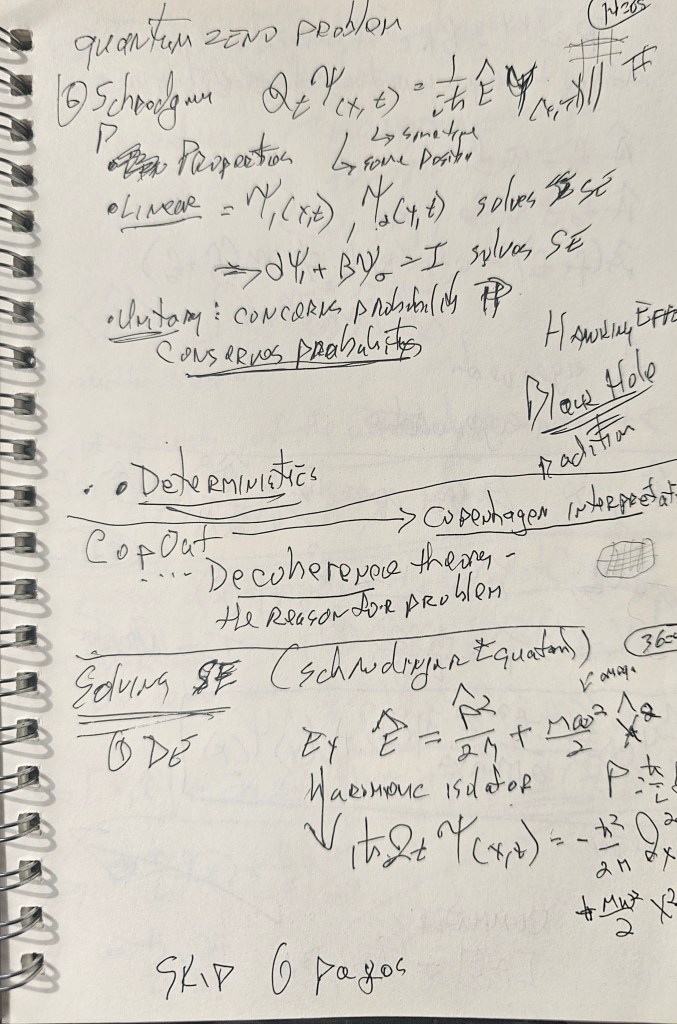 quantum ZENO PROBLEM
⑥ Schrodgum ∂t Ψ(x,t) = 1/iħ Ê Ψ(x,t)
P
↳ sometime
• Properties ↳ some Positio
• LINEAR = Ψ₁(x,t), Ψ₂(x,t) solves SE
⇒ αΨ₁ + BΨ₂ = I solves SE
• Unitary: CONCERNS probability P
CONSERVES PRobabilities
HAWKING EFFE
Black Hole
radition
• • DETERMINISTICS
CopOut → Copenhagen INTERPretat
.... Decoherence theory -
the REASON FOR PROBLEM
Solving SE (schrodinger Equation) 360
omega
① DE Ex Ê = P̂²/2M + Mω²/2 X̂²
HARMONIC isolator P = ħ/i
↓ iħ∂t Ψ(x,t) = - ħ²/2M ∂²x
+ Mω²/2 X²
SKIP 6 pages